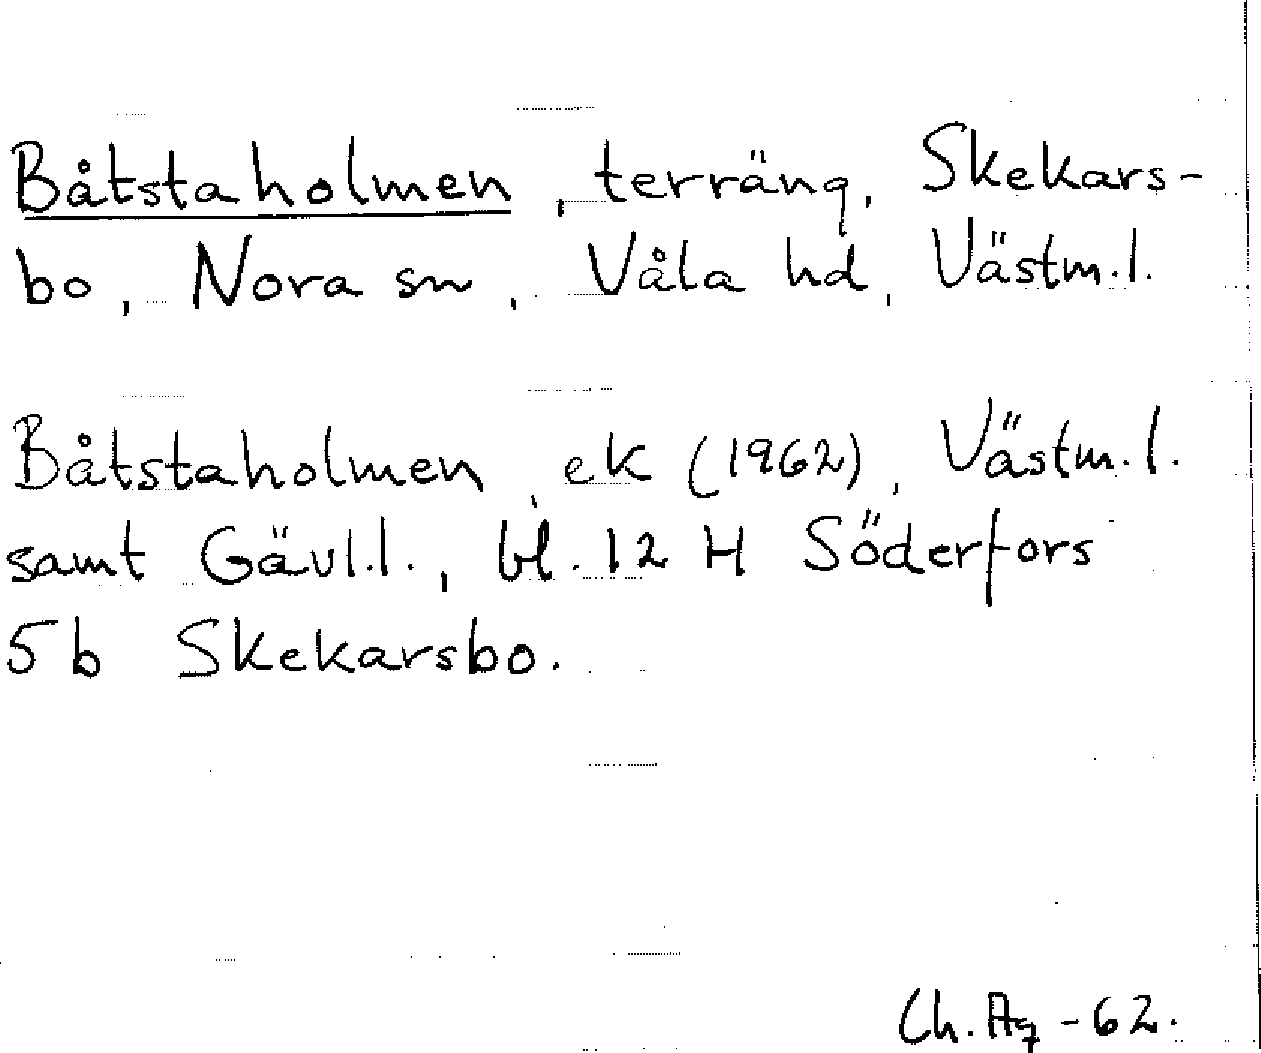 Båtstaholmen, terräng, Skekars-
bo, Nora sn, Våla hd, Västm.l.
Båtstaholmen, ek (1962), Västm.l.
samt Gävl.l., bl. 12 H Söderfors
5b Skekarsbo.
Ch. -62.